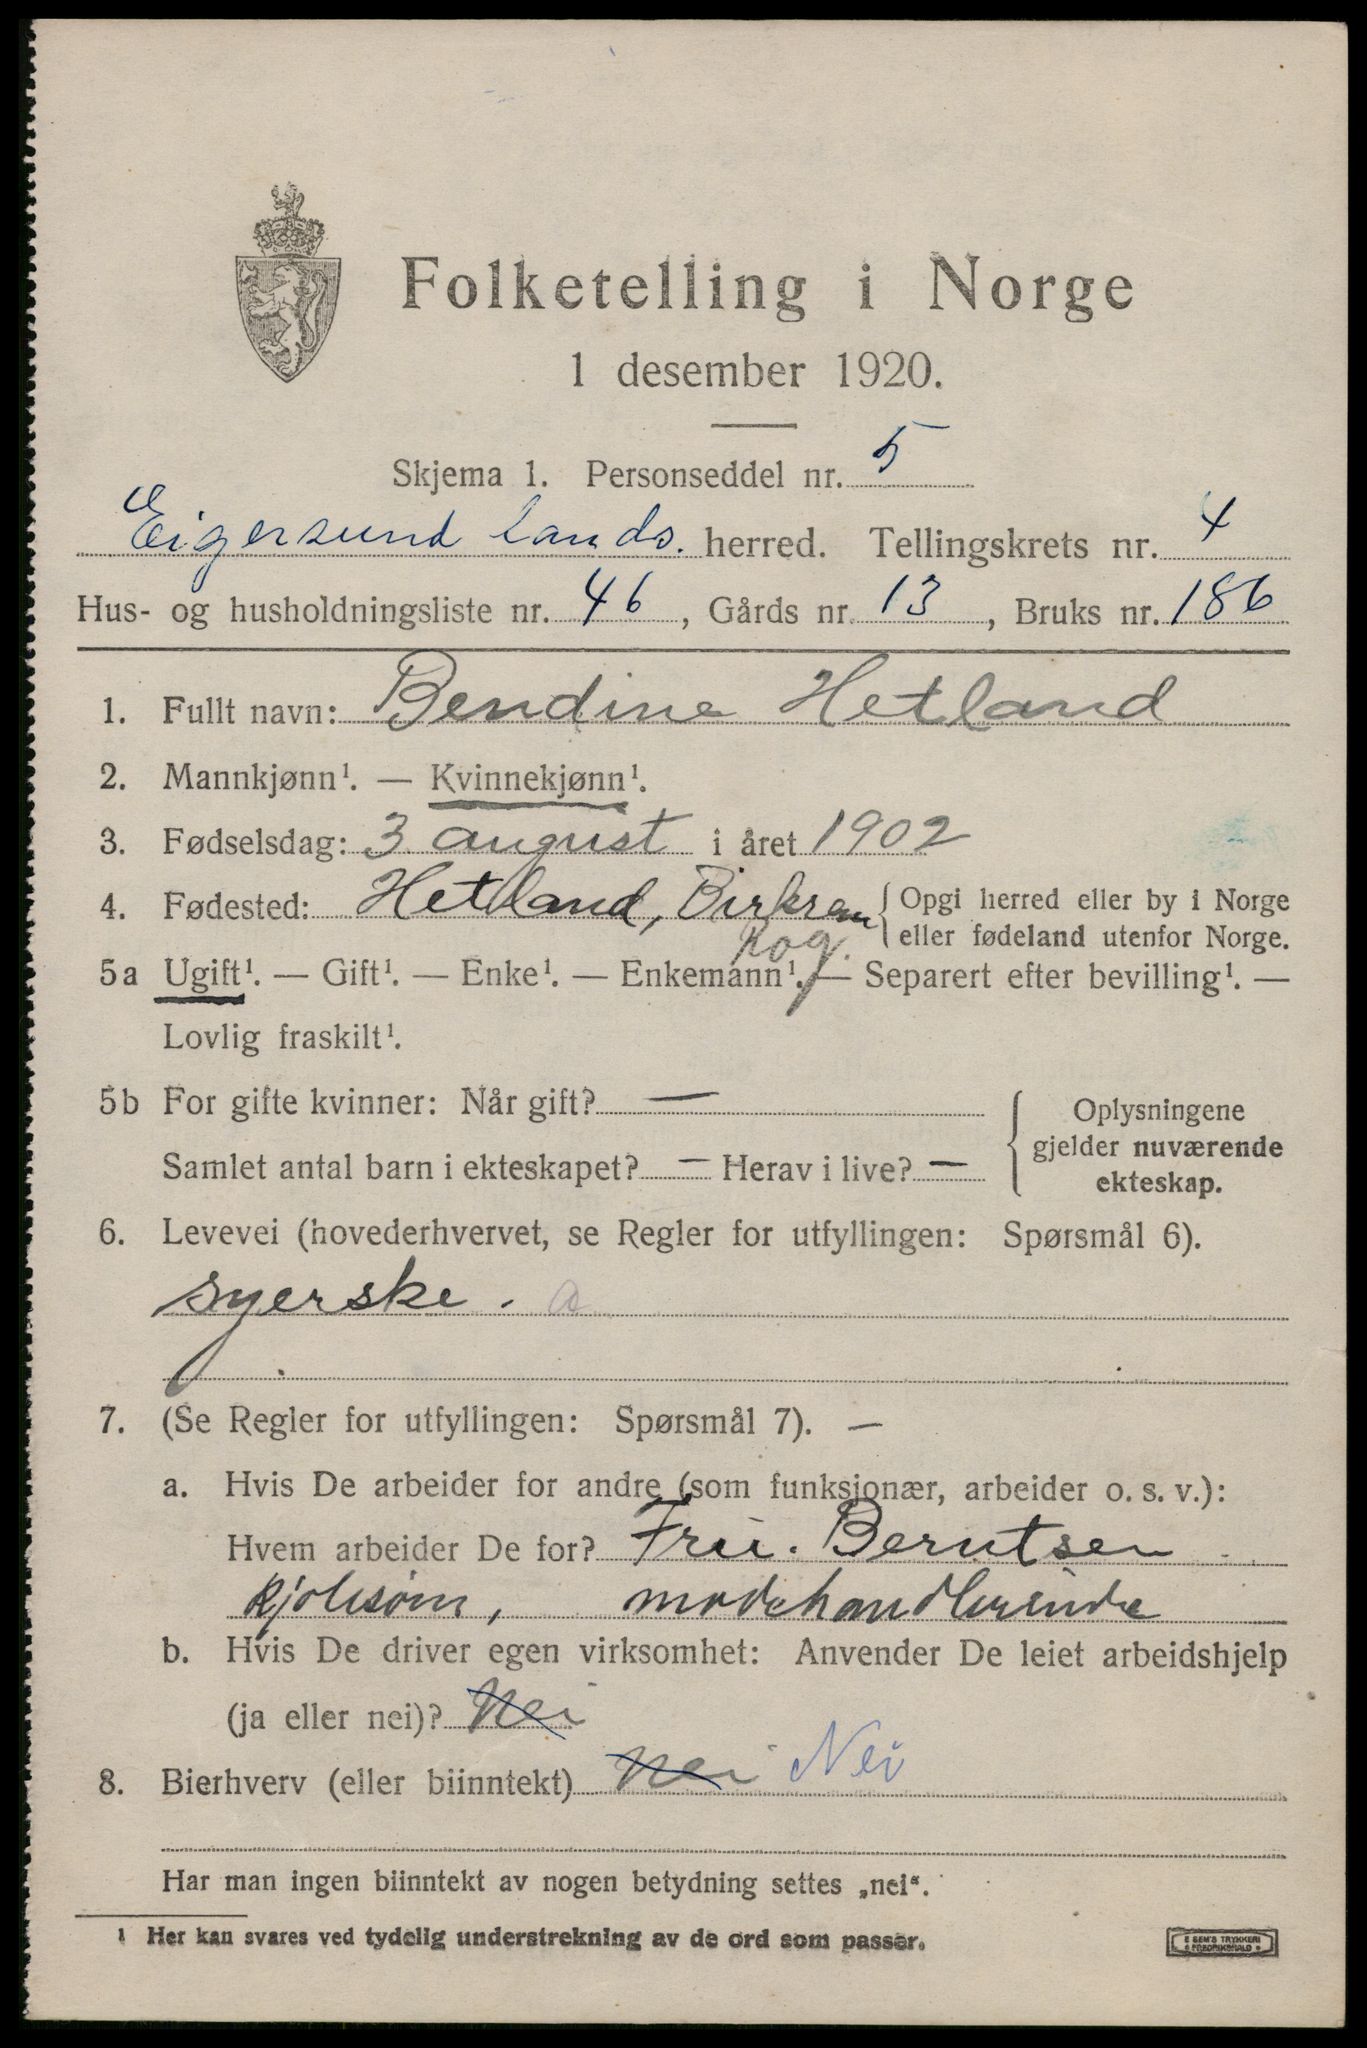 Folketelling i Norge
1 desember 1920.
Skjema 1. Personseddel nr. 5
Eigersund lands. herred. Tellingskrets nr. 4
Hus- og husholdningsliste nr. 46, Gårds nr. 13, Bruks nr. 186
1. Fullt navn: Bendine Hetland
2. Mannkjønn¹. — Kvinnekjønn¹.
3. Fødselsdag: 3 august i året 1902
4. Fødested: Hetland, Birkrem { Opgi herred eller by i Norge
Rog. eller fødeland utenfor Norge.
5a Ugift¹. — Gift¹. — Enke¹. — Enkemann¹. — Separert efter bevilling¹. —
Lovlig fraskilt¹.
5b For gifte kvinner: Når gift? — { Oplysningene
gjelder nuværende
Samlet antal barn i ekteskapet? — Herav i live? —
ekteskap.
6. Levevei (hovederhvervet, se Regler for utfyllingen: Spørsmål 6).
syerske. a
7. (Se Regler for utfyllingen: Spørsmål 7). —
a. Hvis De arbeider for andre (som funksjonær, arbeider o. s. v.):
Hvem arbeider De for? Fru. Berntsen
kjolesøm, modehandlerinde
b. Hvis De driver egen virksomhet: Anvender De leiet arbeidshjelp
(ja eller nei)? Nei
8. Bierhverv (eller biinntekt) Nei Nei
Har man ingen biinntekt av nogen betydning settes „nei“.
1 Her kan svares ved tydelig understrekning av de ord som passer.
E SEM'S TRYKKERI
FREDRIKSHALD